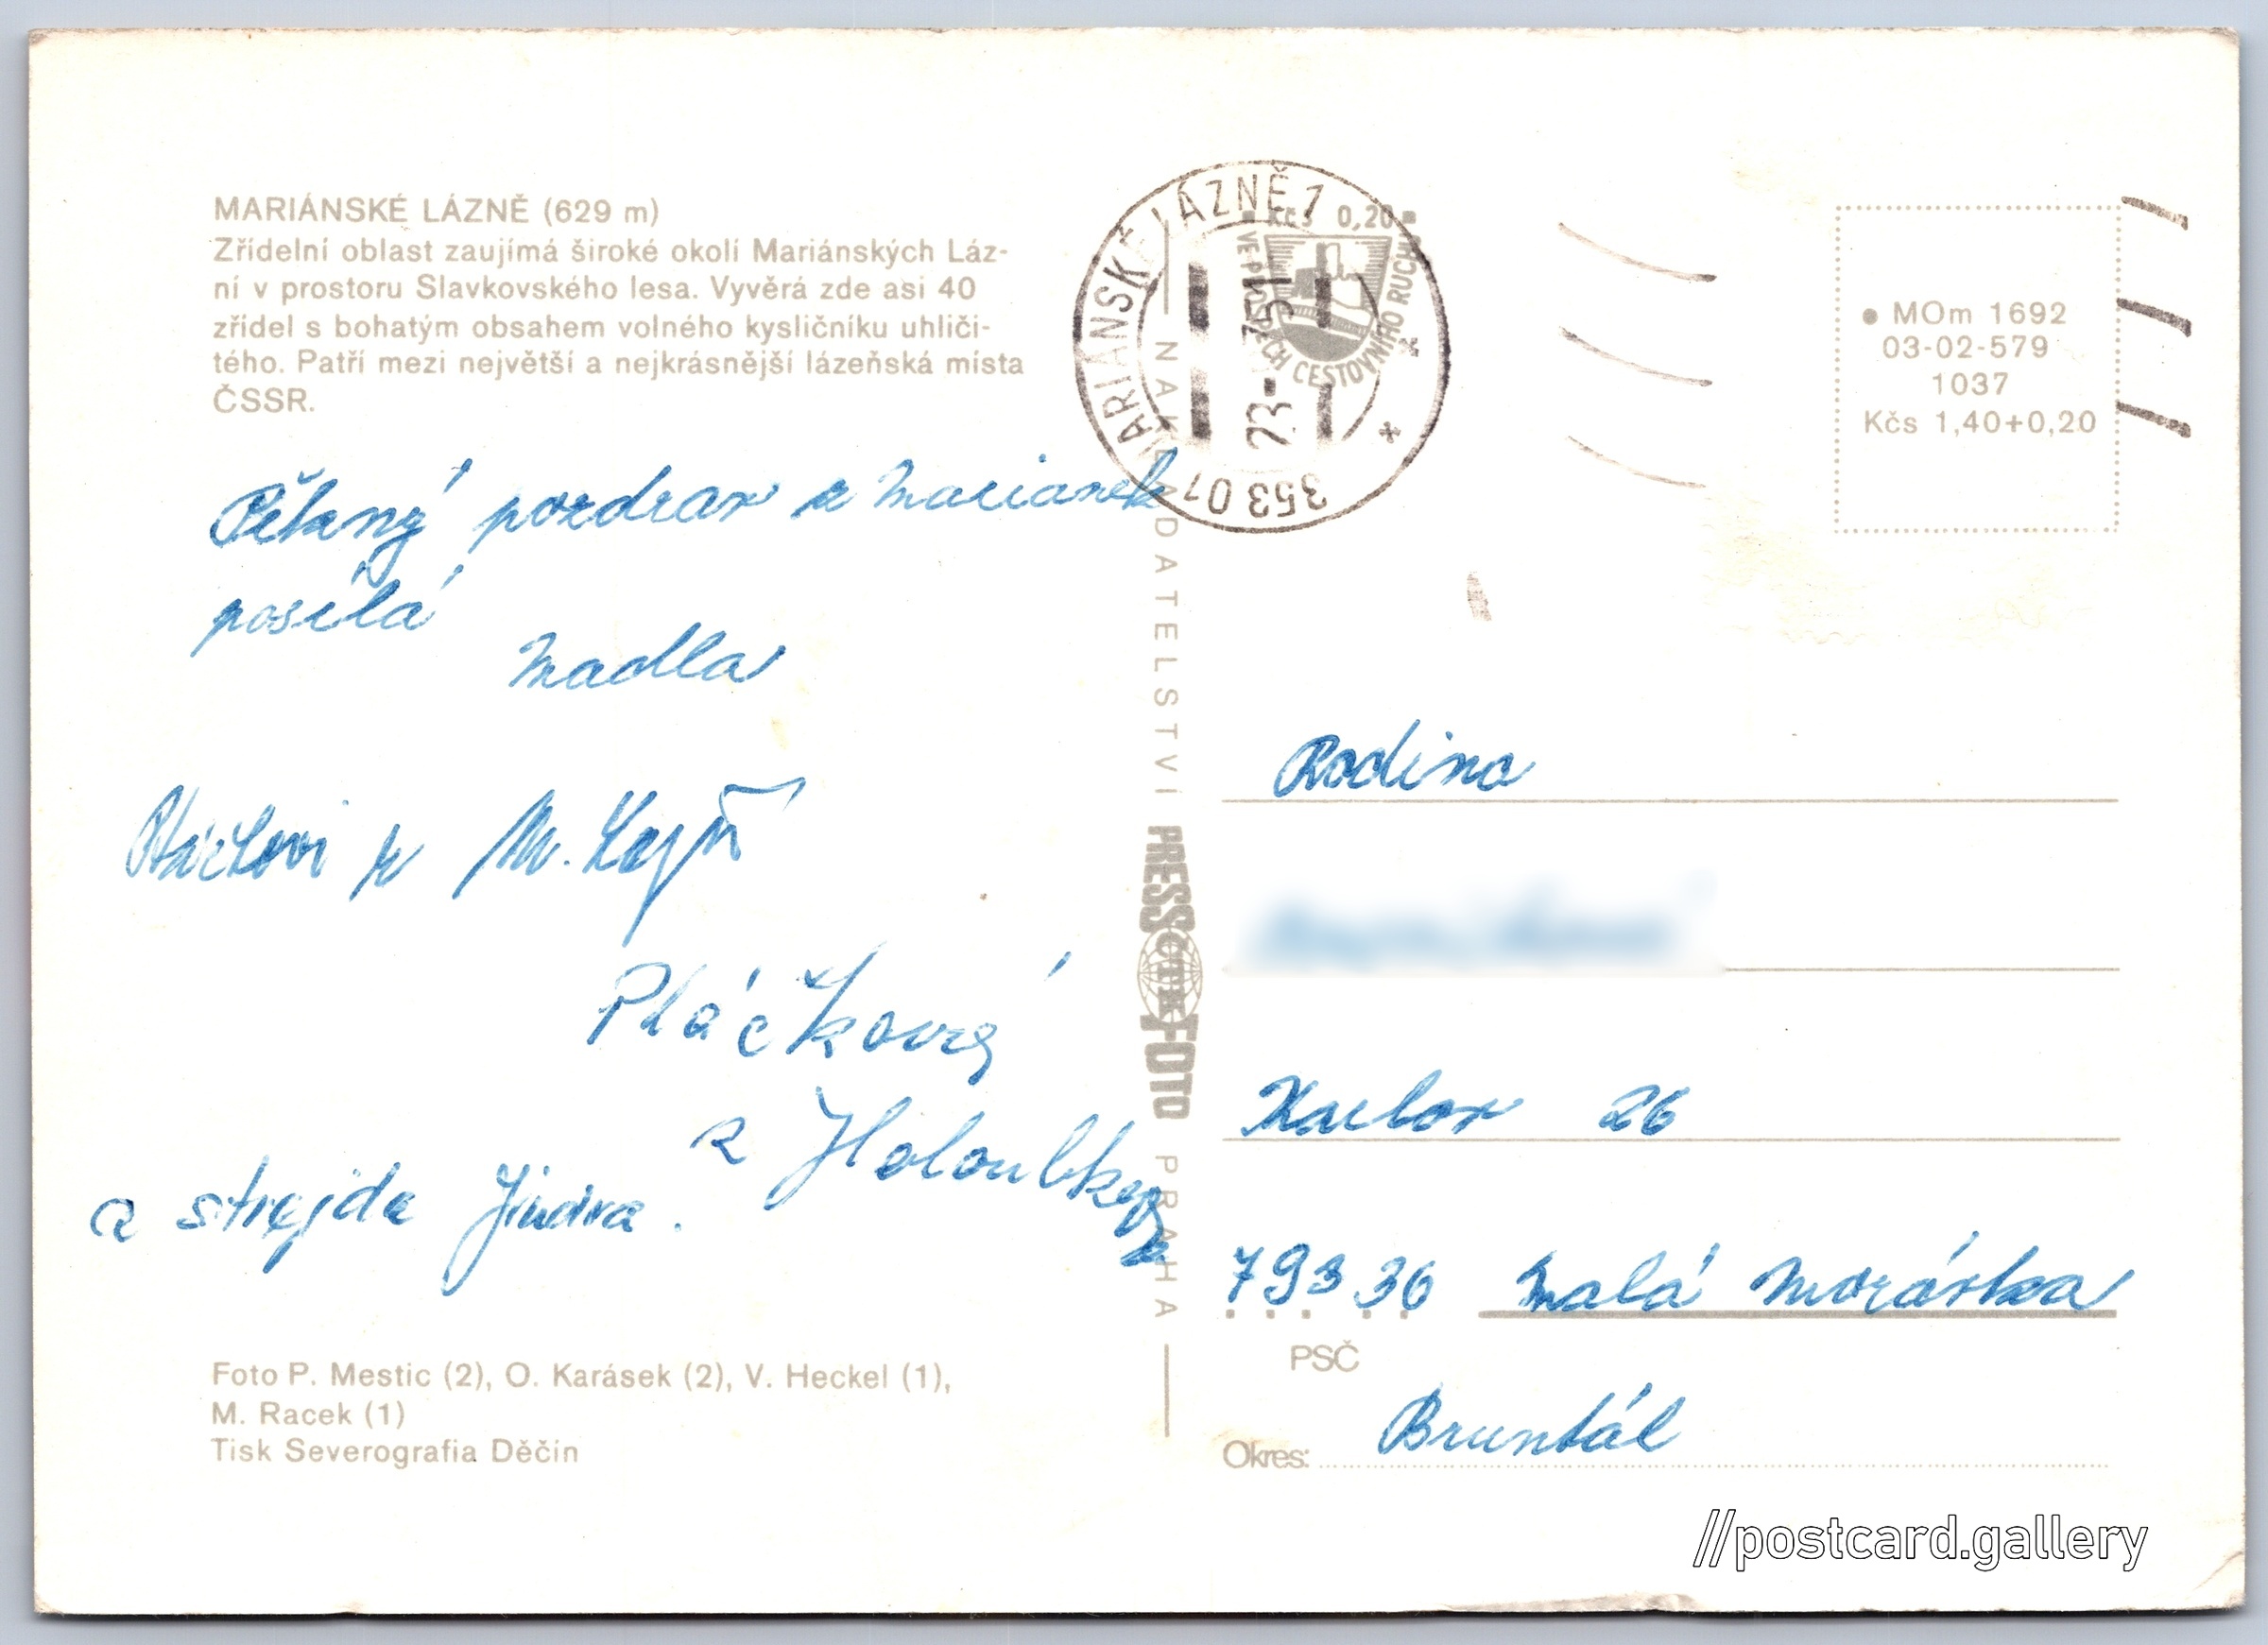 MARIÁNSKÉ LÁZNĚ (629 m)
Zřídelní oblast zaujímá široké okolí Mariánských Láz-
ní v prostoru Slavkovského lesa. Vyvěrá zde asi 40
zřídel s bohatým obsahem volného kysličníku uhliči-
tého. Patří mezi největší a nejkrásnější lázeňská místa
ČSSR.
Pěkný pozdrav z Marianek
posílá
Madla
M.
Pláčkovy
a Holoubkovy
a strejda Jindra.
Foto P. Mestic (2), O. Karásek (2), V. Heckel (1),
M. Racek (1)
Tisk Severografia Děčín
NAKLADATELSTVÍ PRESSFOTO PRAHA
ČTK
MARIÁNSKÉ LÁZNĚ 1
353 01
Kčs 0,20
VE PROSPĚCH CESTOVNÍHO RUCHU
MOm 1692
03-02-579
1037
Kčs 1,40+0,20
Rodina
Karlov 26
793 36 Malá Morávka
PSČ
Okres: Bruntál
//postcard.gallery